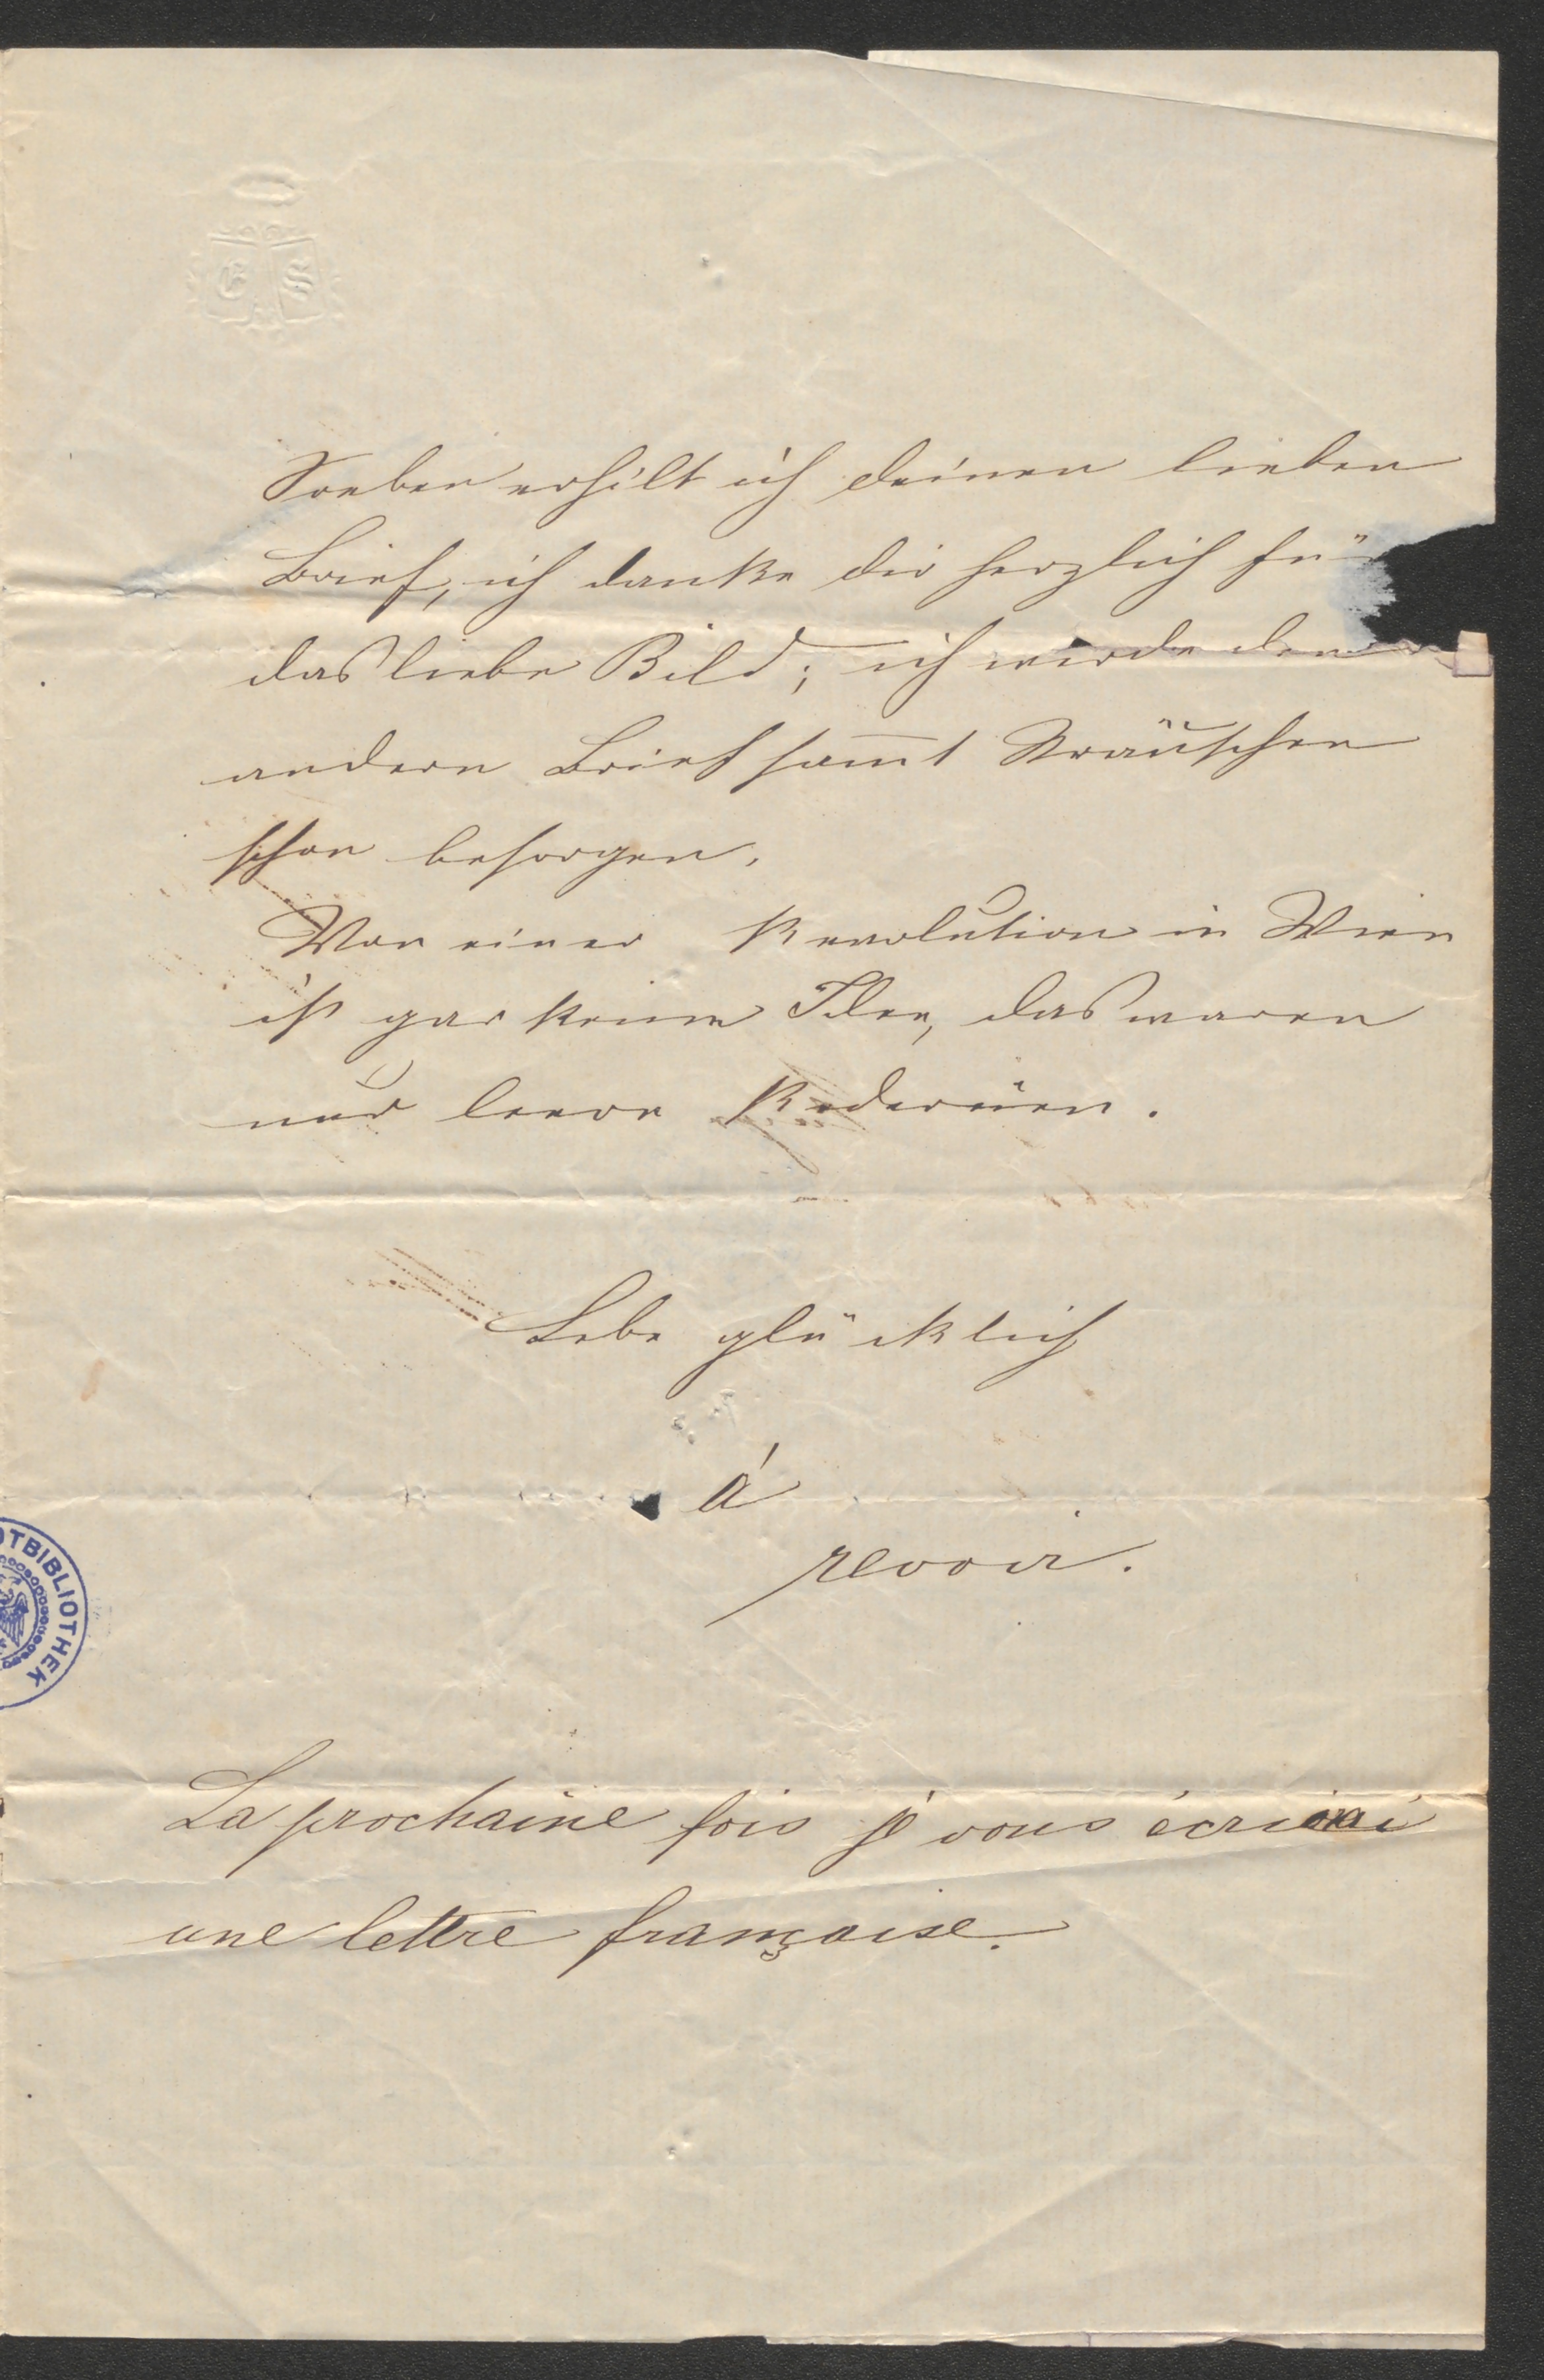 G S
Soeben erhilt ich deinen lieben
Brief, ich danke dir herzlich für
das liebe Bild; ich werde den
andern Brief sam̅t Sträuschen
schon besorgen.
Von einer Revolution in Wien
ist gar keine Idee, das waren
nur leere Redereien.
Lebe glücklich
á
revoir.
TBIBLIOTHEK
La prochaine fois je vous écrirai
une lettre française.